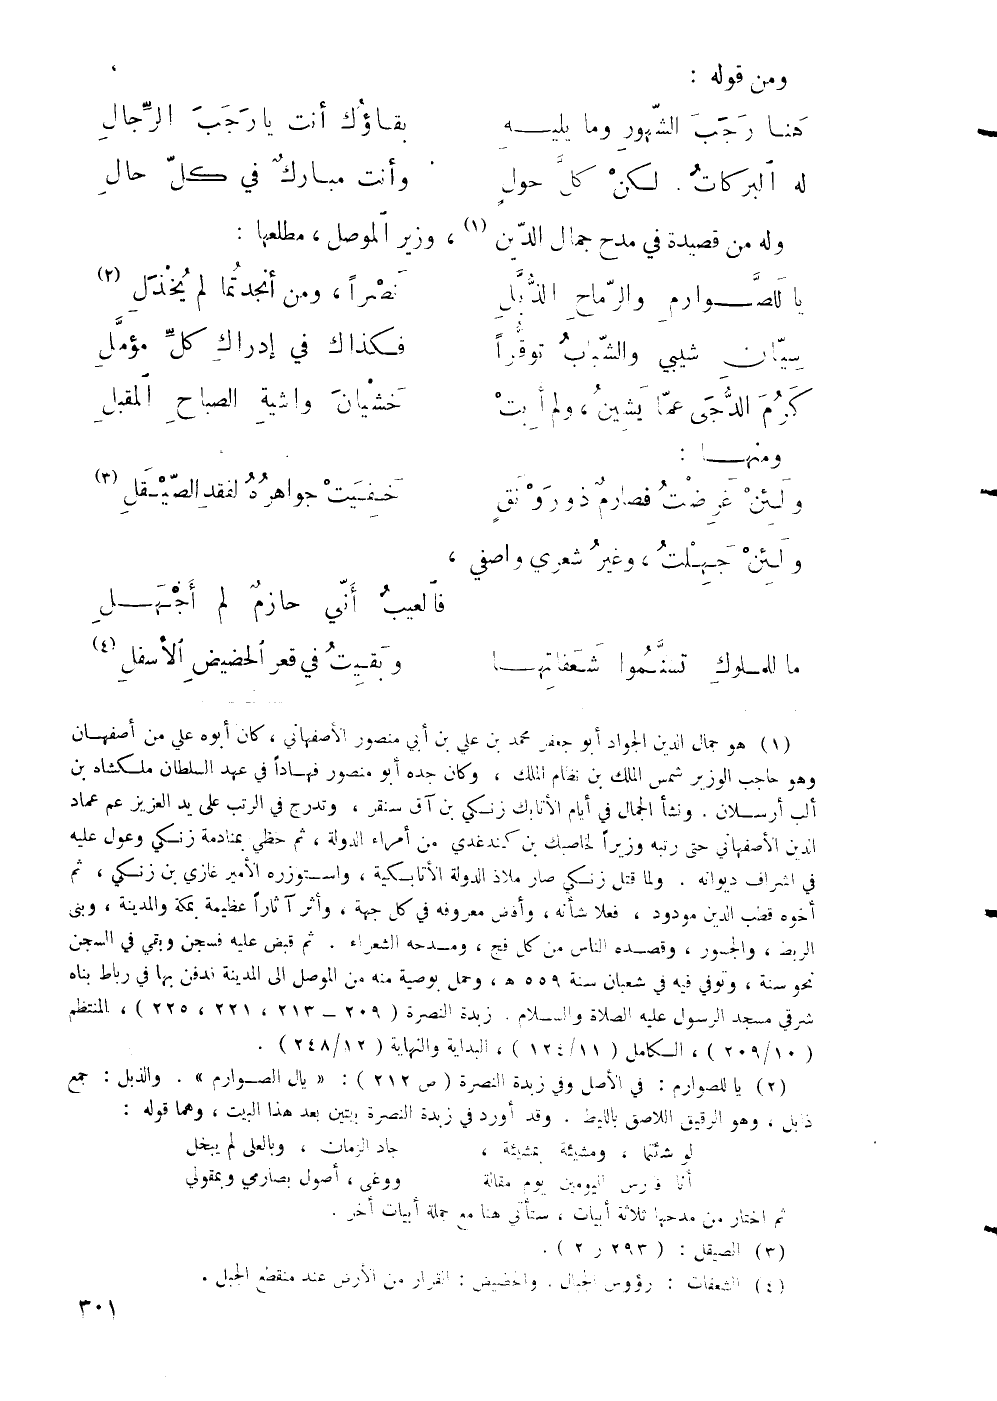 ومن قوله :
هنا رَجَبَ الشّهورِ وما يليــه بقاؤك أنت يا رَجَبَ الرِّجالِ
له البركاتُ . لكنْ كلَّ حولٍ وأنت مباركٌ في كلّ حالِ
وله من قصيدة في مدح جمال الدّين (١) ، وزير الموصل ، مطلعها :
يا للصَّــوارمِ والرّماحِ الذُّبَّلِ نَصْراً ، ومن أنجدتُما لم يُخْذَلِ (٢)
سِيّانِ شيبي والشّبابُ توقُّراً فكذاك في إدراكِ كلِّ مؤمَّلِ
كَرُمَ الدُّجَى عمّا يَشينُ ، ولم أبتْ خَشْيانَ واشيةِ الصباحِ المقبلِ
ومنهــا :
ولَئِنْ غَرِضْتُ فصارمٌ ذو رَوْنَقٍ خَفِيَتْ جواهرُهُ لفقدِ الصّيْقلِ (٣)
ولَئِنْ جَهِلْتُ ، وغيرُ شعري واصفي ،
فالعيبُ أنّي حازمٌ لم أَجْهَــلِ
ما للملوكِ تسنَّموا شَعَفاتِهــا وبَقيتُ في قعر الحضيضِ الأسفلِ (٤)
(١) هو جمال الدين الجواد أبو جعفر محمد بن علي بن أبي منصور الأصفهاني ، كان أبوه علي من أصفهـان
وهو حاجب الوزير شمس الملك بن نظام الملك ، وكان جده أبو منصور فهـاداً في عهد السلطان ملكشاه بن
ألب أرسـلان . ونشأ الجمال في أيام الأتابك زنكي بن آق سنقر ، وتدرج في الرتب على يد العزيز عم عماد
الدين الأصفهاني حتى رتبه وزيراً لخاصبك بن كندغدي من أمراء الدولة ، ثم حظي بمنادمة زنكي وعول عليه
في اشراف ديوانه . ولما قتل زنكي صار ملاذ الدولة الأتابكية ، واستوزره الأمير غازي بن زنكي ، ثم
أخوه قطب الدين مودود ، فعلا شأنه ، وأفاض معروفه في كل جهة ، وأثر آثاراً عظيمة بمكة والمدينة ، وبنى
الربط ، والجسور ، وقصده الناس من كل فج ، ومـدحه الشعراء . ثم قبض عليه فسجن وبقي في السجن
نحو سنة ، وتوفي فيه في شعبان سنة ٥٥٩ هـ ، وحمل بوصية منه من الموصل الى المدينة فدفن بها في رباط بناه
شرقي مسجد الرسول عليه الصلاة والسـلام . زبدة النصرة ( ٢٠٩ – ٢١٣ ، ٢٢١ ، ٢٢٥ ) ، المنتظم
( ١٠/٢٠٩ ) ، الكامل ( ١١/١٢٤ ) ، البداية والنهاية ( ١٢/٢٤٨ ) .
(٢) يا للصوارم : في الأصل وفي زبدة النصرة ( ص ٢١٢ ) : « يال الصـوارم » . والذبل : جمع
ذابل ، وهو الرقيق اللاصق بالليط . وقد أورد في زبدة النصرة بيتين بعد هذا البيت ، وهما قوله :
لو شئتما ، ومشيئة بمشيئة ، جاد الزمان ، وبالعلى لم يبخل
أنا فارس اليومين يوم مقالة ووغى ، أصول بصارمي وبمقولي
ثم اختار من مدحها ثلاثة أبيات ، ستأتي هنا مع جملة أبيات أخر .
(٣) الصيقل : ( ٢٩٣ ر ٢ ) .
(٤) الشعفات : رؤوس الجبال . والحضيض : القرار من الأرض عند منقطع الجبل .
٣٠١